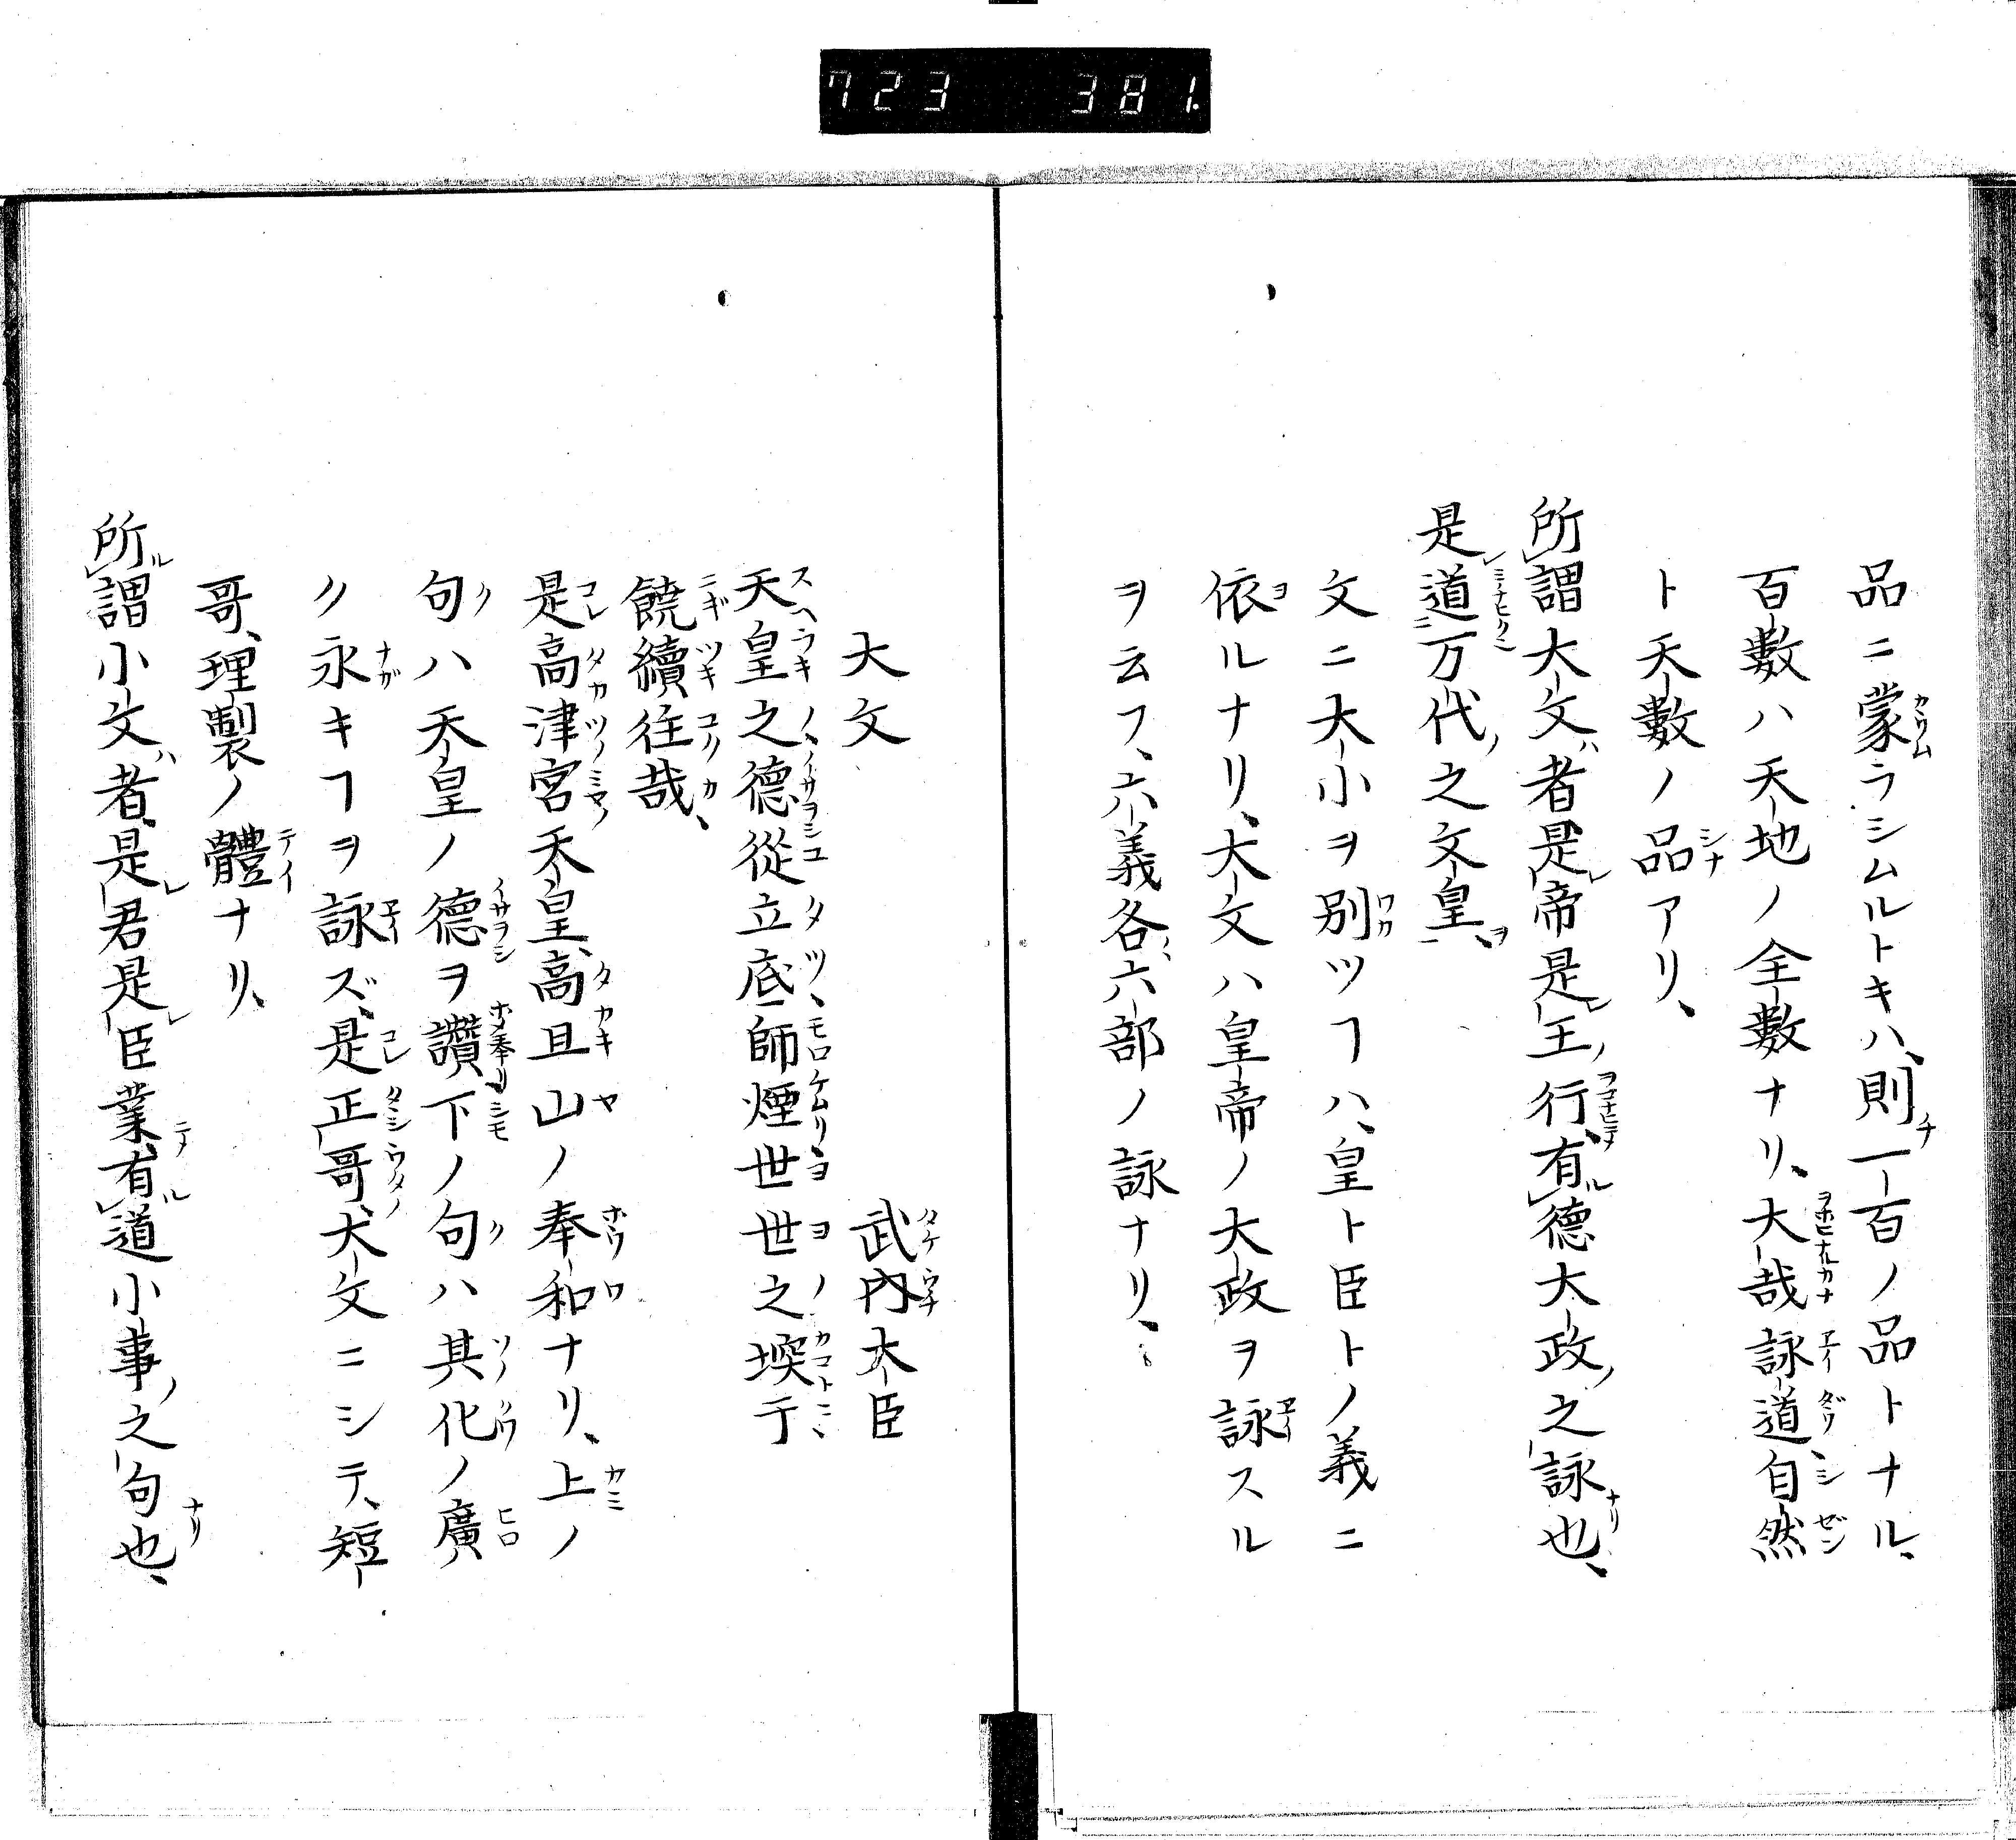 723 381.
品ニ蒙ラシムルトキハ、則一百ノ品トナル、
百數ハ天地ノ全數ナリ、大哉詠道自然
ト天數ノ品アリ、
所謂大文者是帝是王行、有德大政之詠也、
是道万代之文皇、
文ニ大小ヲ別ツヿハ、皇ト臣トノ義ニ
依ルナリ、大文ハ皇帝ノ大政ヲ詠スル
ヲ云フ、六義各六部ノ詠ナリ、
大文 武內大臣
天皇之德從立底師煙世世之堗于
饒續往哉、
是高津宮天皇、高且山ノ奉和ナリ、上ノ
句ハ天皇ノ德ヲ讚下ノ句ハ其化ノ廣
ク永キヿヲ詠ズ、是正哥、大文ニシテ、短
哥、理製ノ體ナリ、
所謂小文者、是君是臣業、有道小事之句也、